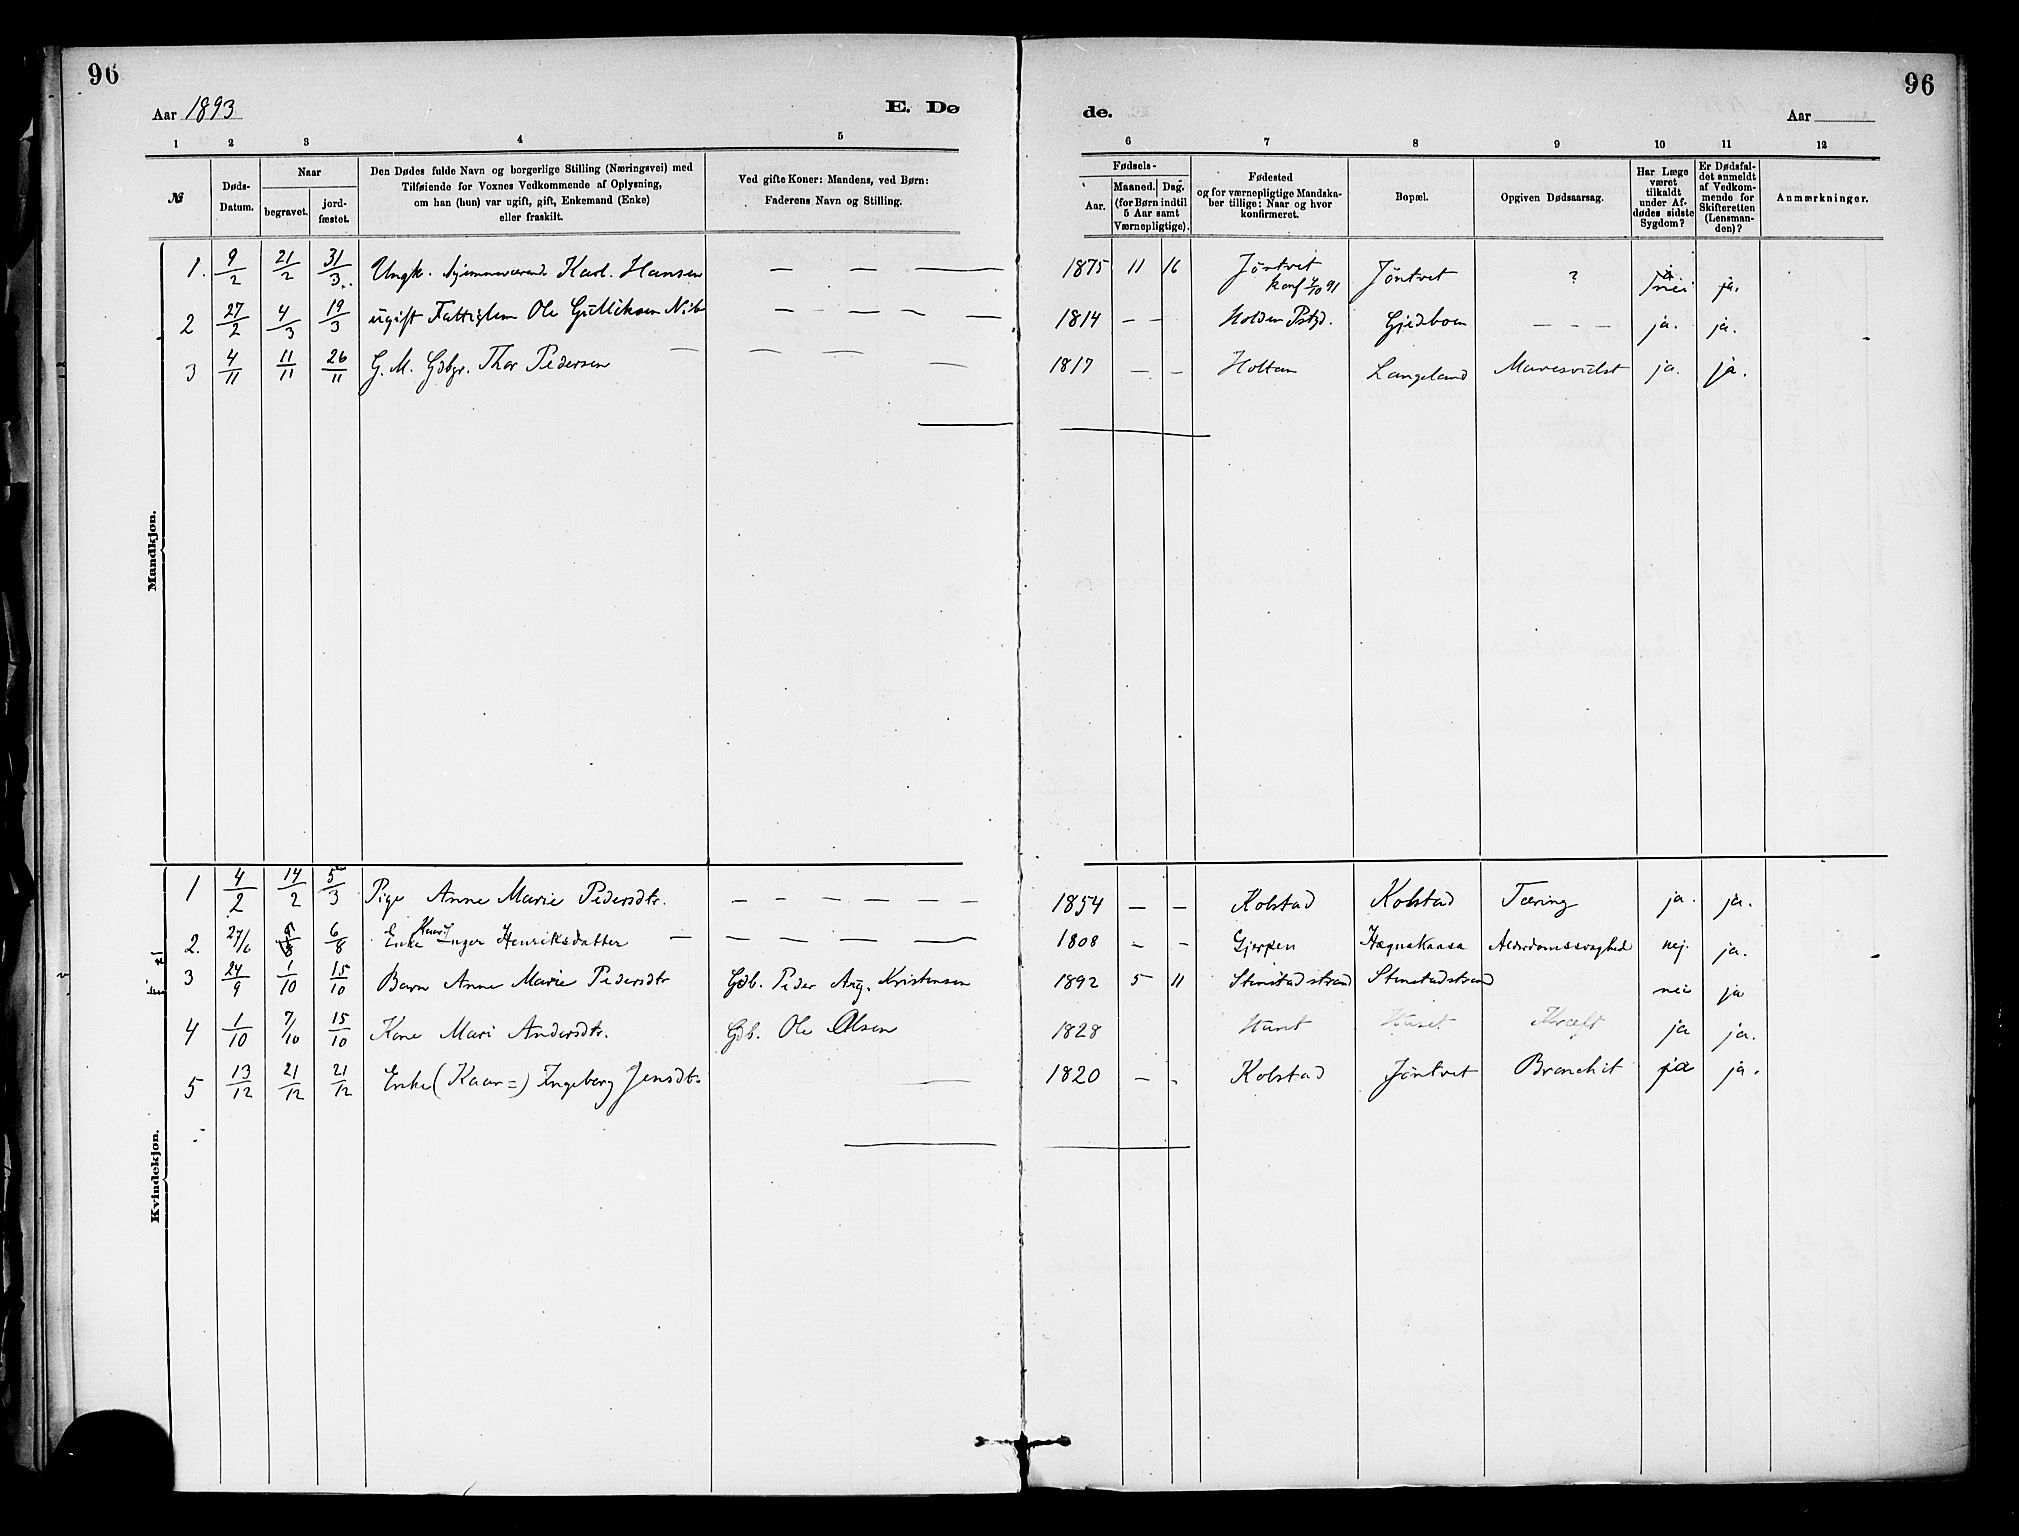 96
96
Aar 1893
E. Dø
de.
Aar
1 2 3 4 5 6 7 8 9 10 11 12
№
Døds-
Datum.
Naar
begravet.
jord-
fæstet.
Den Dødes fulde Navn og borgerlige Stilling (Næringsvei) med
Tilføiende for Voxnes Vedkommende af Oplysning,
om han (hun) var ugift, gift, Enkemand (Enke)
eller fraskilt.
Ved gifte Koner: Mandens, ved Børn:
Faderens Navn og Stilling.
Fødsels-
Aar.
Maaned. Dag.
(for Børn indtil
5 Aar samt
Værnepligtige).
Fødested
og for værnepligtige Mandska-
ber tillige: Naar og hvor
konfirmeret.
Bopæl.
Opgiven Dødsaarsag.
Har Læge
været
tilkaldt
under Af-
dødes sidste
Sygdom?
Er Dødsfal-
det anmeldt
af Vedkom-
mende for
Skifteretten
(Lensman-
den)?
Anmærkninger.
Mandkjøn.
1. 9/2 21/2 31/3 Ungk. hjemmeværende Karl Hansen — — — 1875 11 16 Jøntvet Jøntvet ? nei ja.
konf /10 91
2 27/2 4/3 19/3 ugift Fattiglem Ole Gulliksen — — — — 1814 — — Holden Pstgd. Gjedboen — — — ja. ja.
3 4/11 11/11 26/11 G. M. Gdbgr. Thor Pedersen — — — — 1817 — — Holtan Langeland Mavesvulst ja. ja.
Kvindekjøn.
1 4/2 14/2 5/3 Pige Anne Marie Pedersdtr. — — — — — — 1854 — — Kolstad Kolstad Tæring ja. ja.
2. 27/6 6/8 Enke Inger Henriksdatter — — — — — — 1808 — — Gjerpen Høgnakaasa Alderdomssvaghed nej. ja.
3 24/9 1/10 15/10 Barn Anne Marie Pedersdtr Gdb. Peder Aug. Kristensen 1892 5 11 Stenstadstrand Stenstadstrand nei ja
4 1/10 7/10 15/10 Kone Mari Andersdtr. Gdb. Ole Olsen 1828 Huset Huset Kræft ja ja.
5 13/12 21/12 21/12 Enke (Kaar=) Ingeborg Jensdtr — 1820 — - Kolstad Jøntvet Bronchit ja ja.